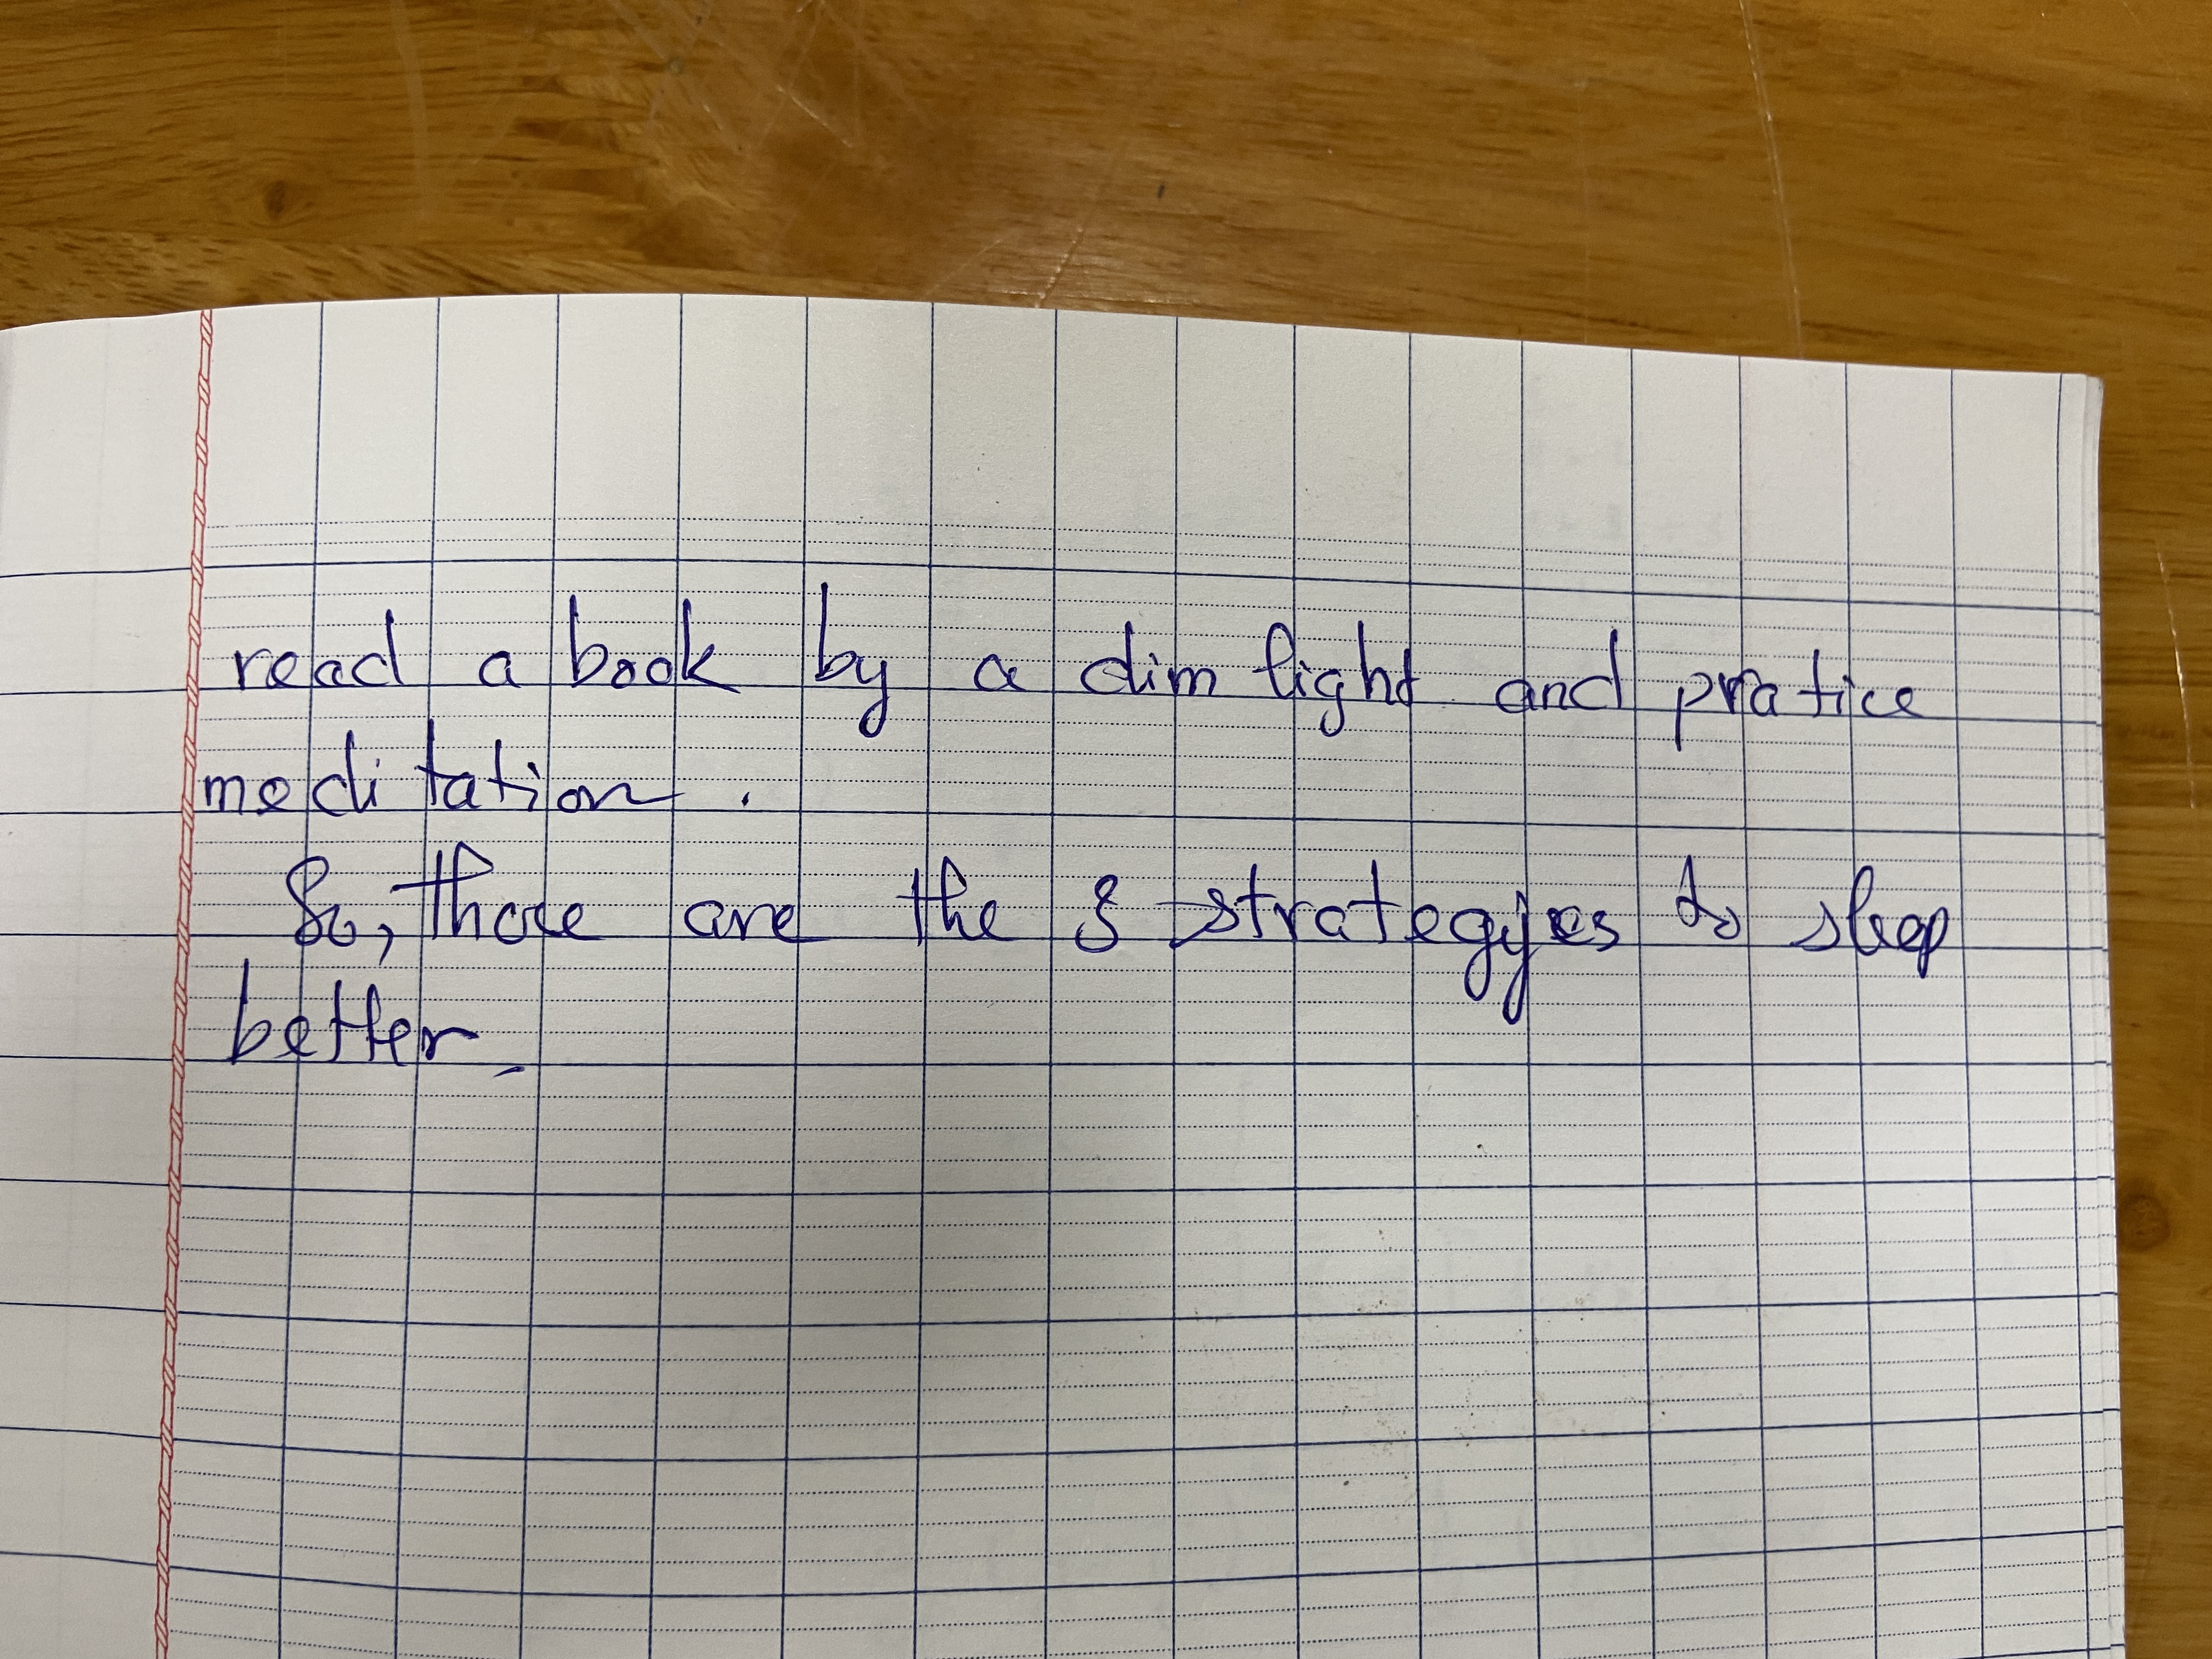 read a book by a dim light and pratice
meditation.
So, those are the 3 strategies to sleep
better.